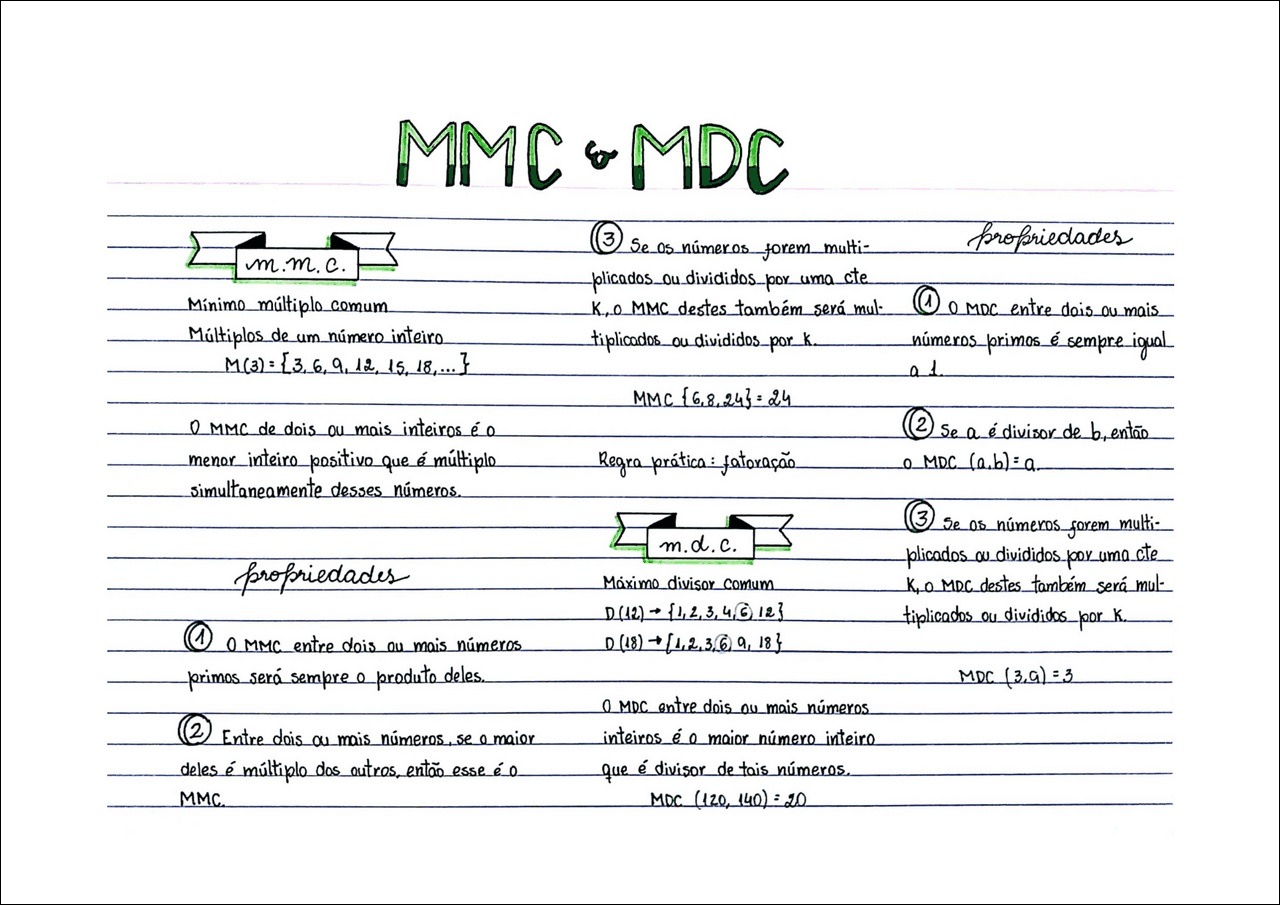 MMC & MDC
m.m.c.
Mínimo múltiplo comum
Múltiplos de um número inteiro
M(3) = {3, 6, 9, 12, 15, 18, ...}
O MMC de dois ou mais inteiros é o
menor inteiro positivo que é múltiplo
simultaneamente desses números.
propriedades
① O MMC entre dois ou mais números
primos será sempre o produto deles.
② Entre dois ou mais números, se o maior
deles é múltiplo dos outros, então esse é o
MMC.
③ Se os números forem multi-
plicados ou divididos por uma cte
K, o MMC destes também será mul-
tiplicados ou divididos por K.
MMC {6, 8, 24} = 24
Regra prática: fatoração
m.d.c.
Máximo divisor comum
D(12) → {1, 2, 3, 4, 6, 12}
D(18) → {1, 2, 3, 6, 9, 18}
O MDC entre dois ou mais números
inteiros é o maior número inteiro
que é divisor de tais números.
MDC (120, 140) = 20
propriedades
① O MDC entre dois ou mais
números primos é sempre igual
a 1.
② Se a é divisor de b, então
o MDC (a,b) = a.
③ Se os números forem multi-
plicados ou divididos por uma cte
K, o MDC destes também será mul-
tiplicados ou divididos por K.
MDC (3,9) = 3